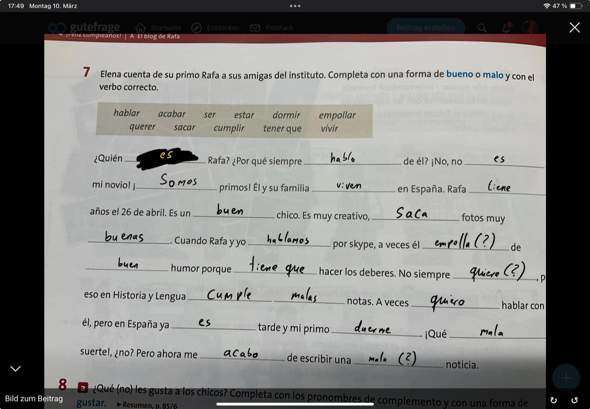 17:49 Montag 10. März
47 %
gutefrage
A El blog de Rafa
7 Elena cuenta de su primo Rafa a sus amigas del instituto. Completa con una forma de bueno o malo y con el
verbo correcto.
hablar acabar ser estar dormir empollar
querer sacar cumplir tener que vivir
¿Quién es Rafa? ¿Por qué siempre habla de él? ¡No, no es
mi novio! ¡ Somos primos! Él y su familia viven en España. Rafa tiene
años el 26 de abril. Es un buen chico. Es muy creativo, saca fotos muy
buenas. Cuando Rafa y yo hablamos por skype, a veces él empolla (?) de
buen humor porque tiene que hacer los deberes. No siempre quiere (?), p
eso en Historia y Lengua cumple malas notas. A veces quiero hablar con
él, pero en España ya es tarde y mi primo duerme. ¡Qué mala
suerte!, ¿no? Pero ahora me acabo de escribir una mala (?) noticia.
8 ¿Qué (no) les gusta a los chicos? Completa con los pronombres de complemento y con una forma de
gustar. ▸ Resumen, p. 85/6
Bild zum Beitrag